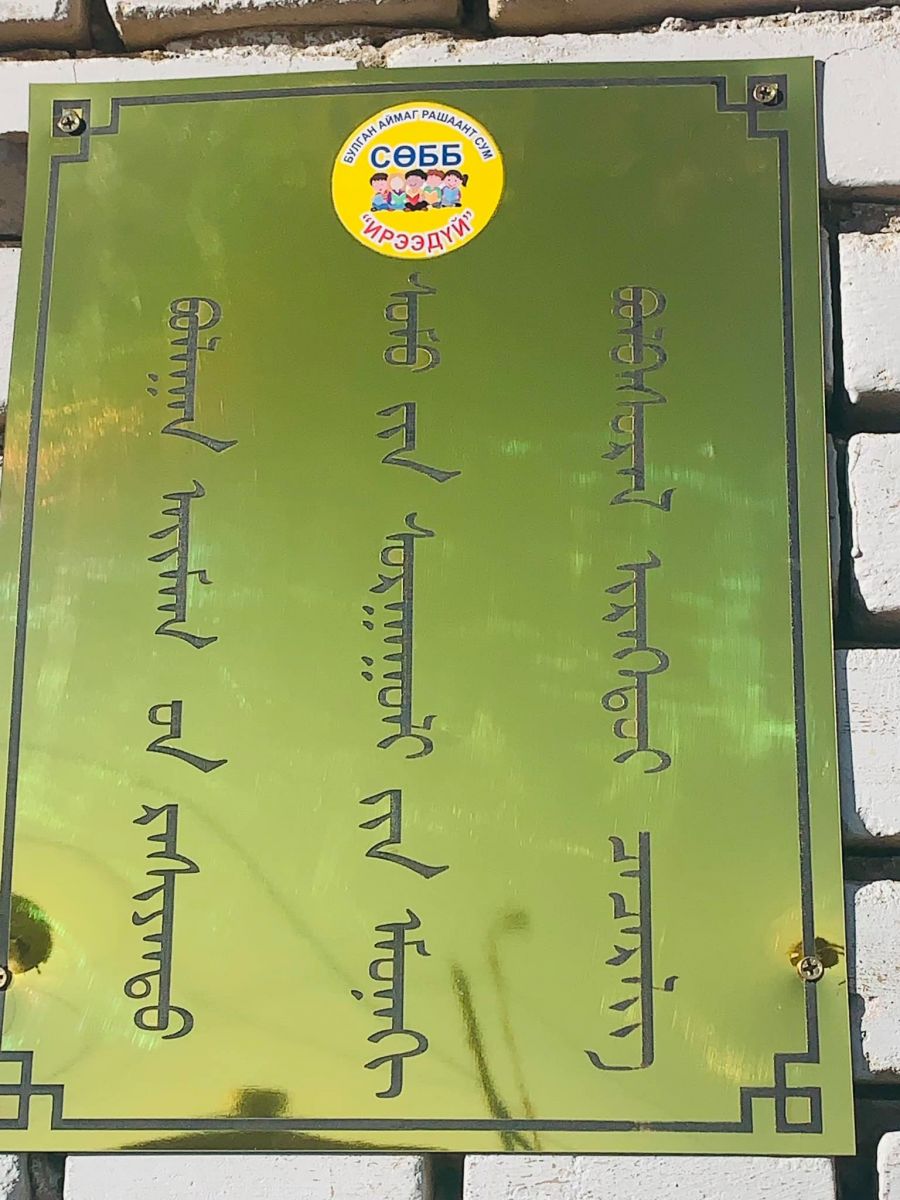 БУЛГАН АЙМАГ РАШААНТ СУМ
СӨББ
“ИРЭЭДҮЙ”
ᠪᠤᠯᠭᠠᠨ ᠠᠶᠢᠮᠠᠭ ᠤᠨ ᠷᠠᠰᠢᠶᠠᠨᠲᠤ
ᠰᠤᠮᠤ ᠶᠢᠨ ᠰᠤᠷᠭᠠᠭᠤᠯᠢ ᠶᠢᠨ
ᠢᠷᠡᠭᠡᠳᠦᠢ ᠴᠡᠴᠡᠷᠯᠢᠭ